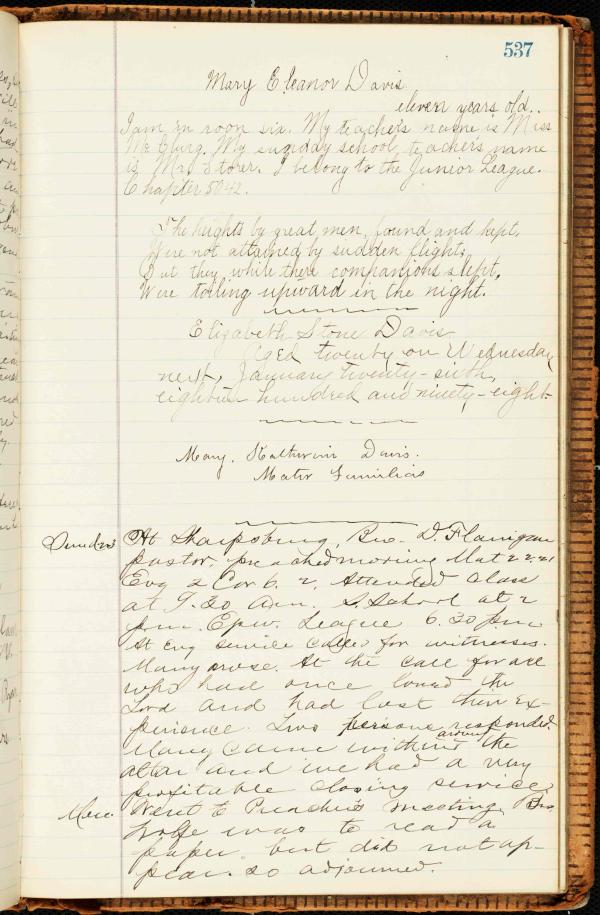 537
Mary Eleanor Davis
eleven years old.
I am in room six. My teachers name is Miss
Mc Clurg. My sunday school teachers name
is Mrs Storer. I belong to the Junior League.
Chapter 5042.
The heights by great men, found and kept,
Were not attained by sudden flight,
But they, while there companions slept,
Were toiling upward in the night.
Elizabeth Stone Davis
Aged twenty on Wednesday
next, January twenty-sixth,
eighteen hundred and ninety-eight.
Mary. Katherine Davis.
Mater Familias
Sund 23 At Sharpsburg, Bro. D. Flanigan
pastor, preached morning Mat 22-21
Evg 2 Cor 6. 2. Attended Class
at 9.30 am. S. School at 2
pm. Epw. League 6.30 pm
At Evg service called for witnesses.
Many arose. At the call for all
who had once loved the
Lord and had lost their Ex-
perience. Two persons responded.
Many came within around the
altar and we had a very
profitable closing service.
Went to Preacher's Meeting. Bro
Wolfe was to read a
paper but did not ap-
pear. so adjourned.